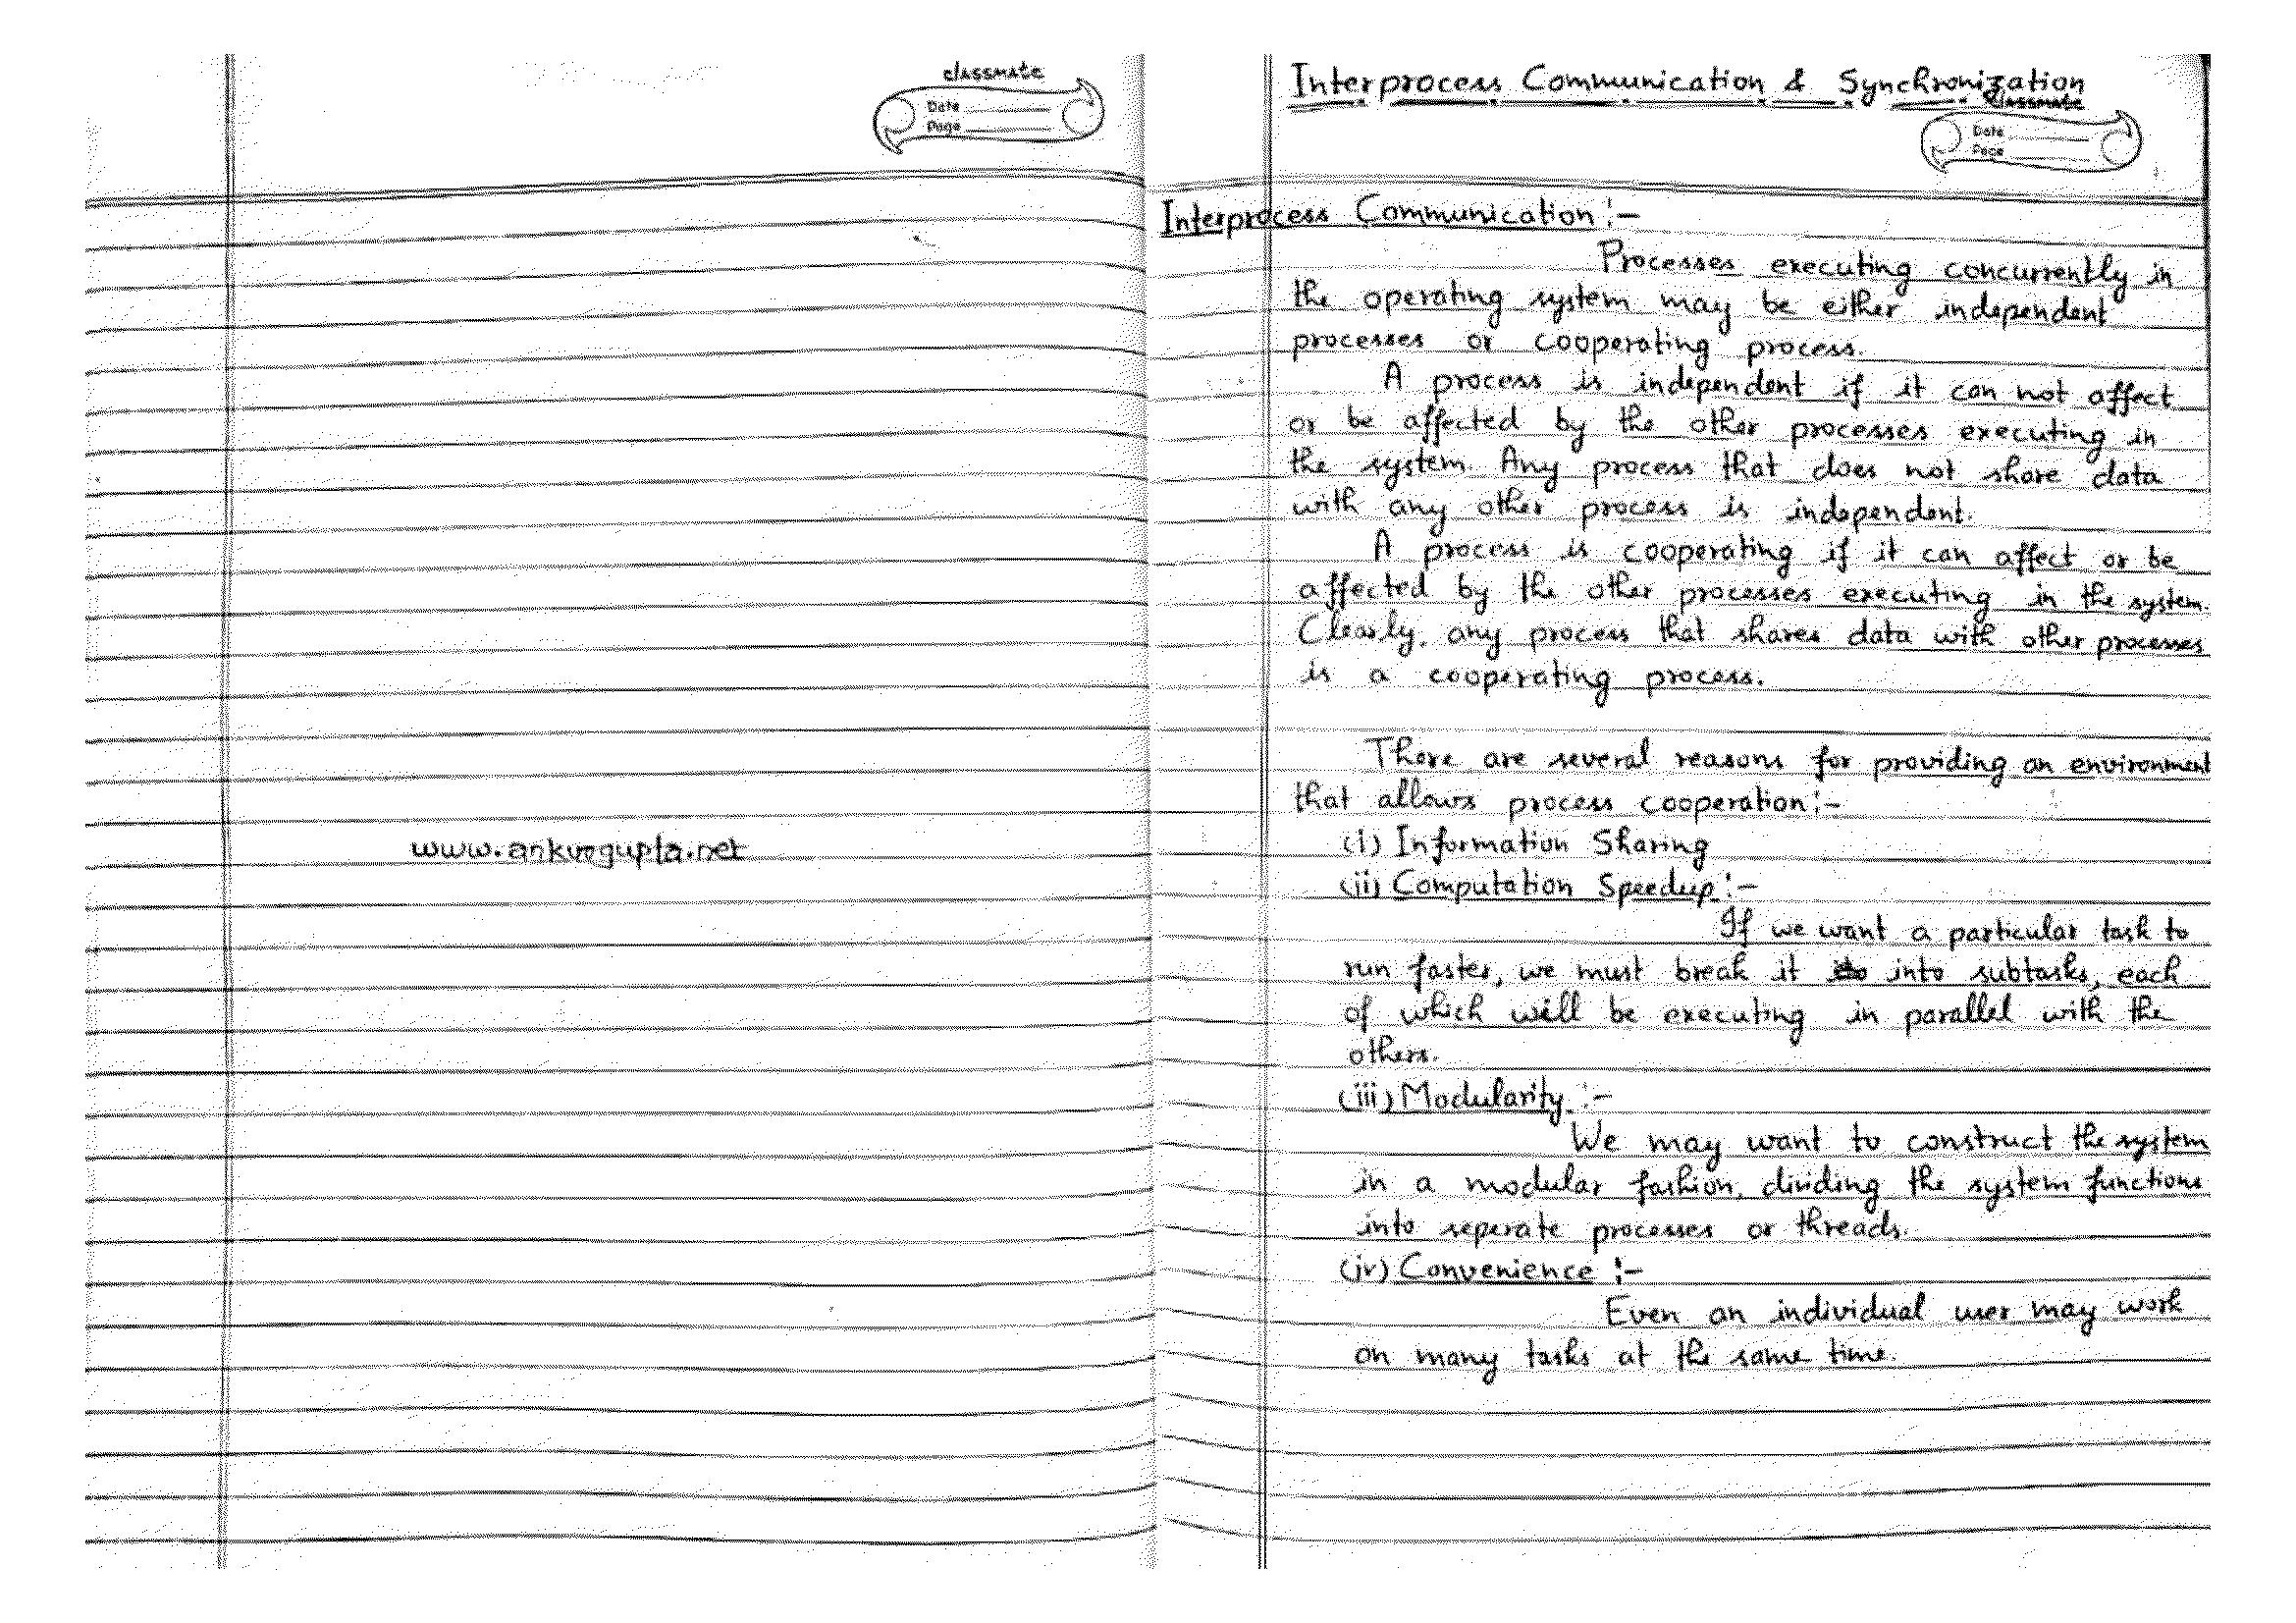 classmate
Date
Page
www.ankurgupta.net
Interprocess Communication & Synchronization
classmate
Date
Page
Interprocess Communication :-
Processes executing concurrently in
the operating system may be either independent
processes or cooperating process.
A process is independent if it can not affect
or be affected by the other processes executing in
the system. Any process that does not share data
with any other process is independent.
A process is cooperating if it can affect or be
affected by the other processes executing in the system.
Clearly, any process that shares data with other processes
is a cooperating process.
There are several reasons for providing an environment
that allows process cooperation :-
(i) Information Sharing
(ii) Computation Speedup :-
If we want a particular task to
run faster, we must break it into subtasks, each
of which will be executing in parallel with the
others.
(iii) Modularity :-
We may want to construct the system
in a modular fashion, dividing the system functions
into seperate processes or threads.
(iv) Convenience :-
Even an individual user may work
on many tasks at the same time.